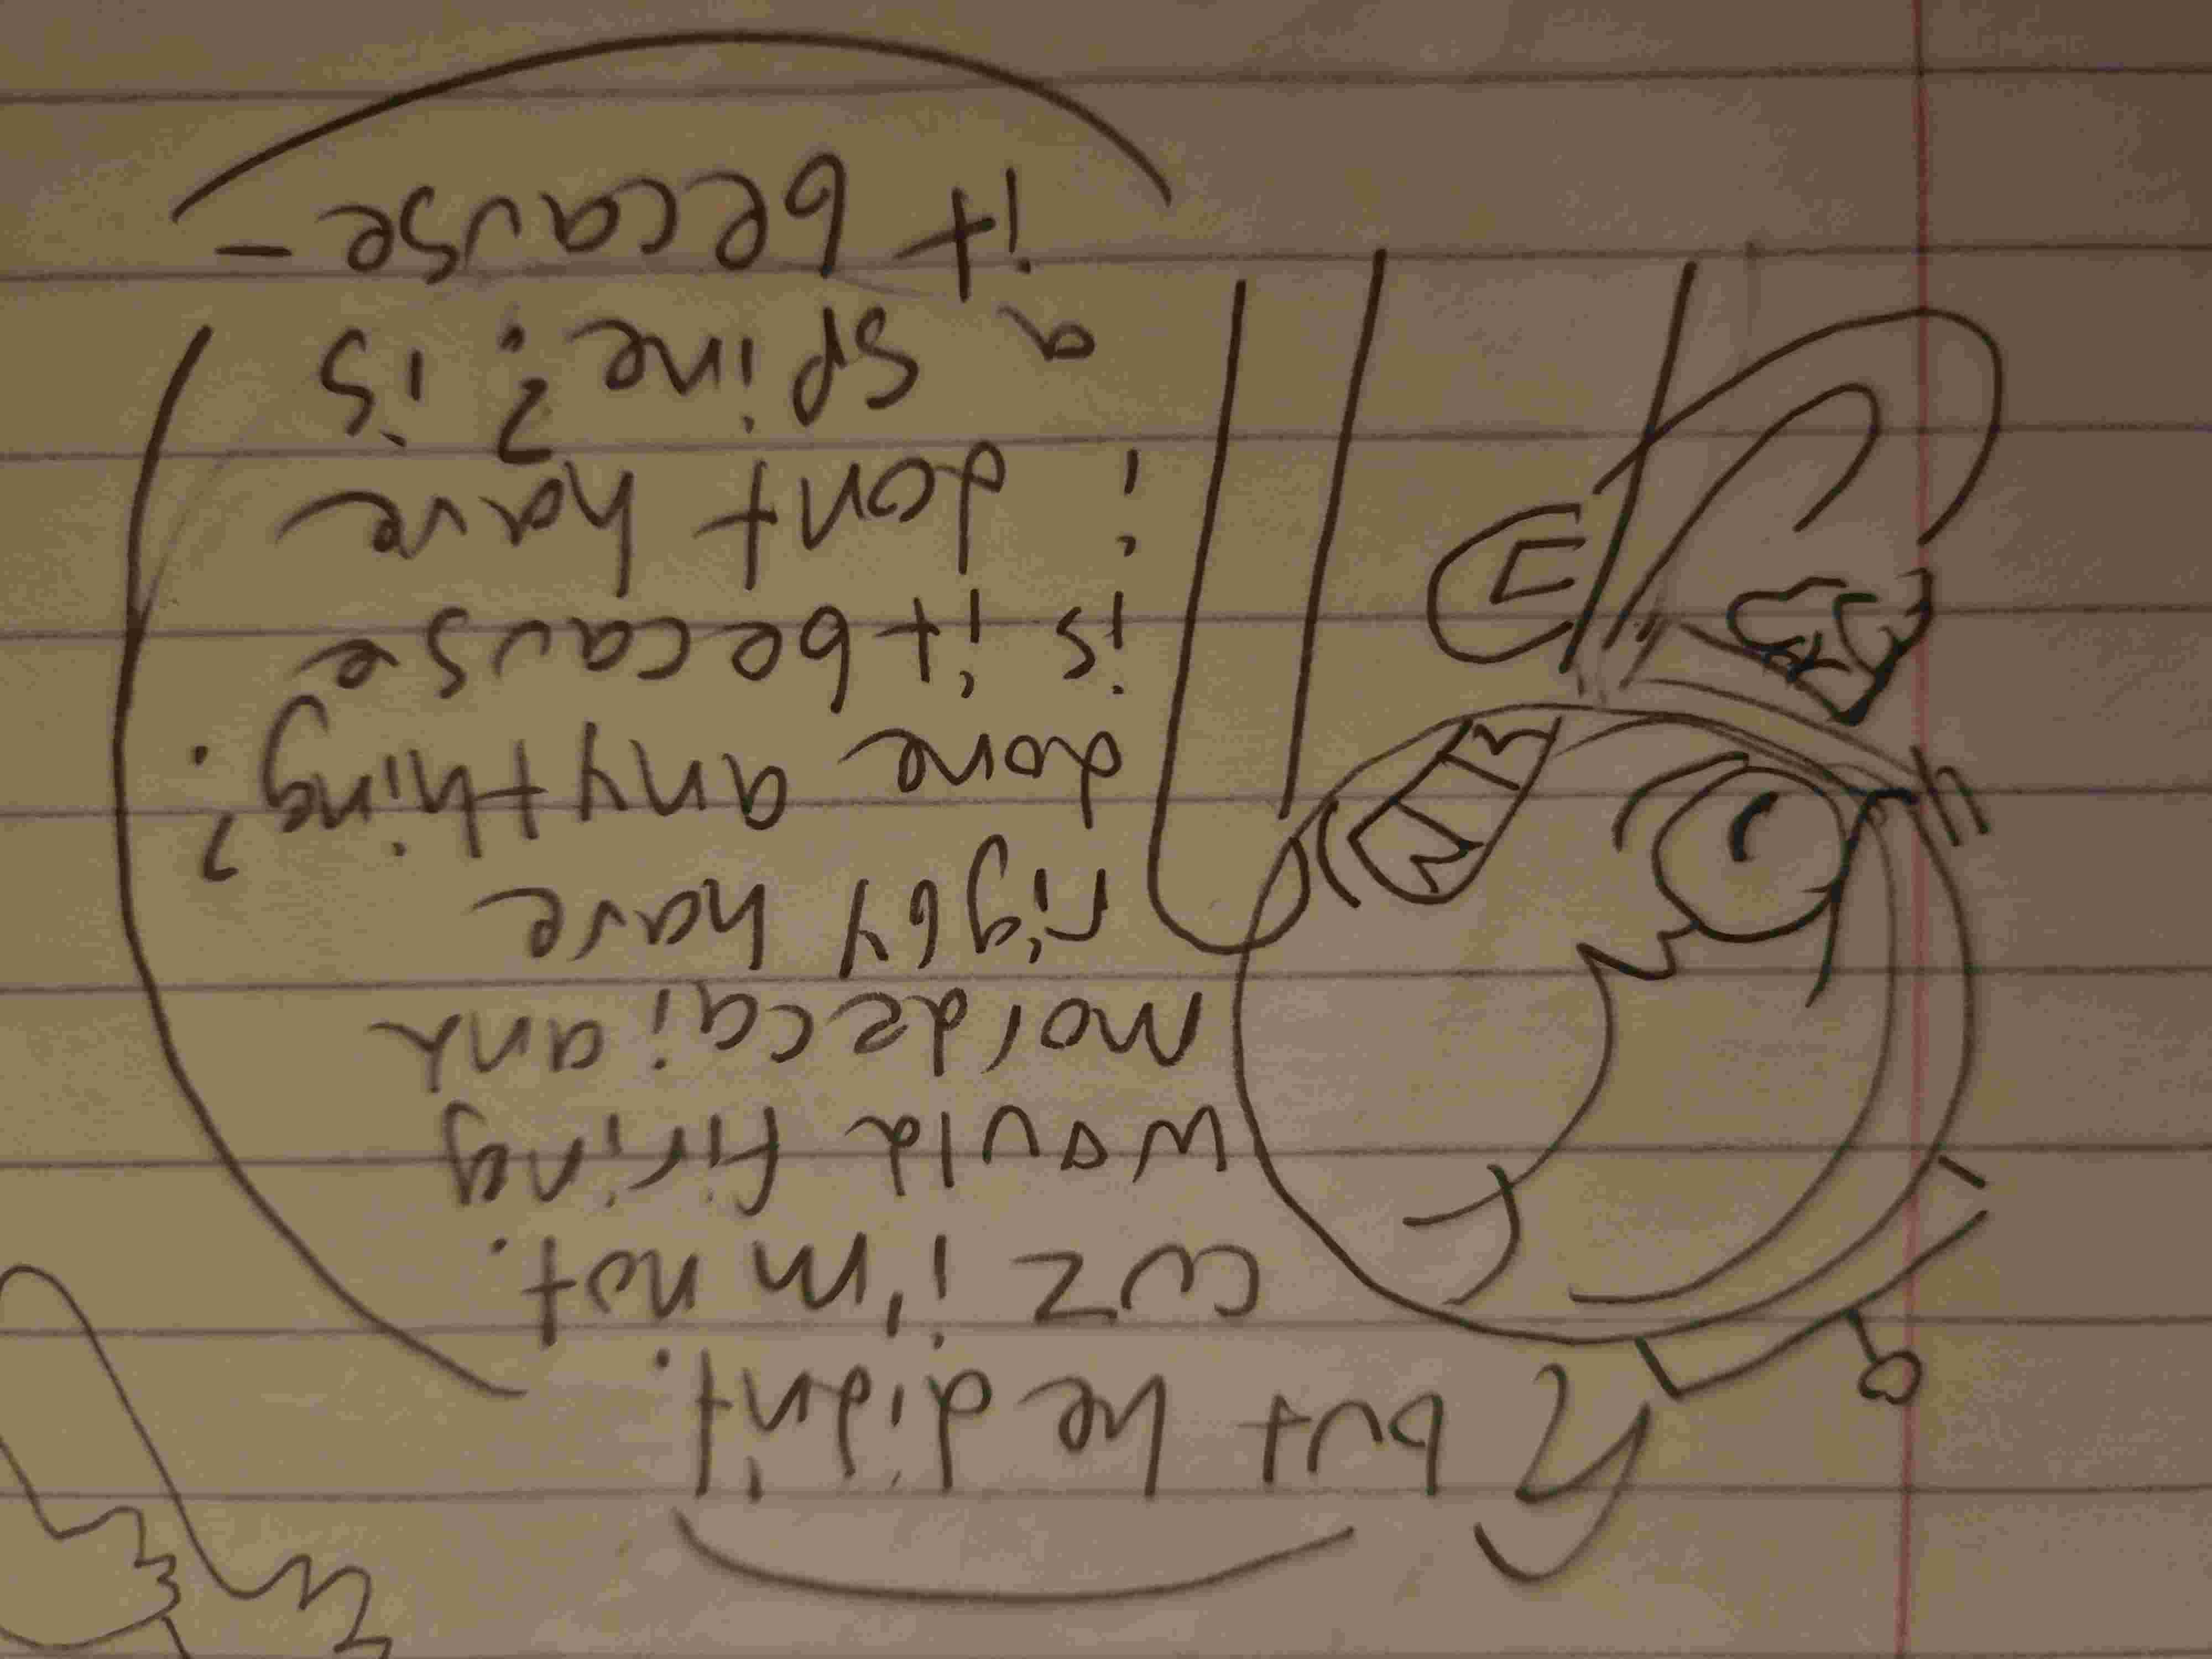 but he didn't.
cuz i'm not.
would firing
mordecai and
rigby have
done anything?
is it because
i dont have
a spine? is
it because –